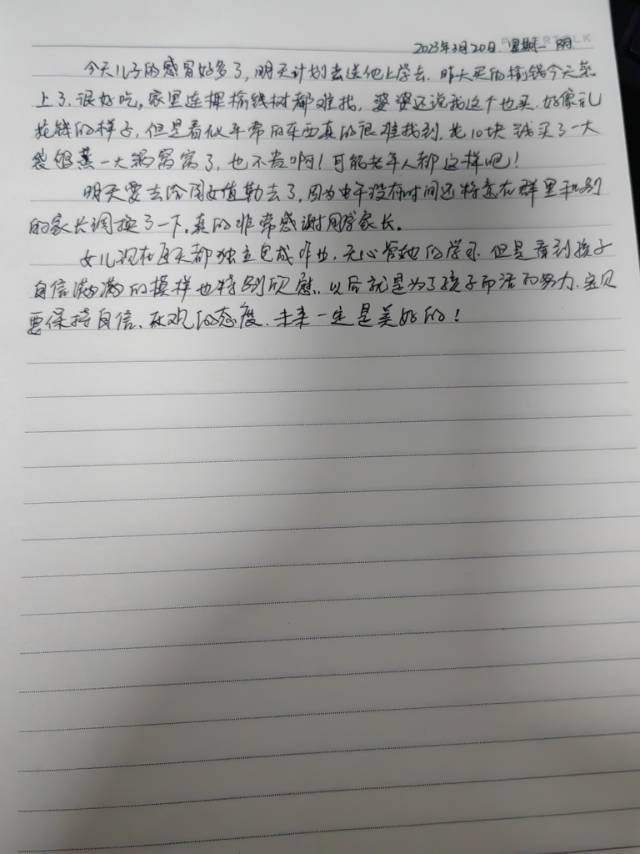 2023年3月20日 星期一 阴
今天儿子的感冒好多了,明天计划去送他上学去.昨天买的榆钱今天蒸
上了.很好吃,家里连棵榆钱树都难找,婆婆还说我这个也买.好像乱
花钱的样子,但是看似平常的东西真的很难找到.花10块钱买了一大
袋够蒸一大锅窝窝了,也不贵啊!可能老年人都这样吧!
明天要去给闺女值勤去了,因为中午没有时间还特意在群里和别
的家长调换了一下.真的非常感谢同学家长.
女儿现在每天都独立完成作业.无心管她的学习.但是看到孩子
自信满满的模样也特别欣慰.以后就是为了孩子而活而努力.宝贝
要保持自信.乐观的态度.未来一定是美好的!